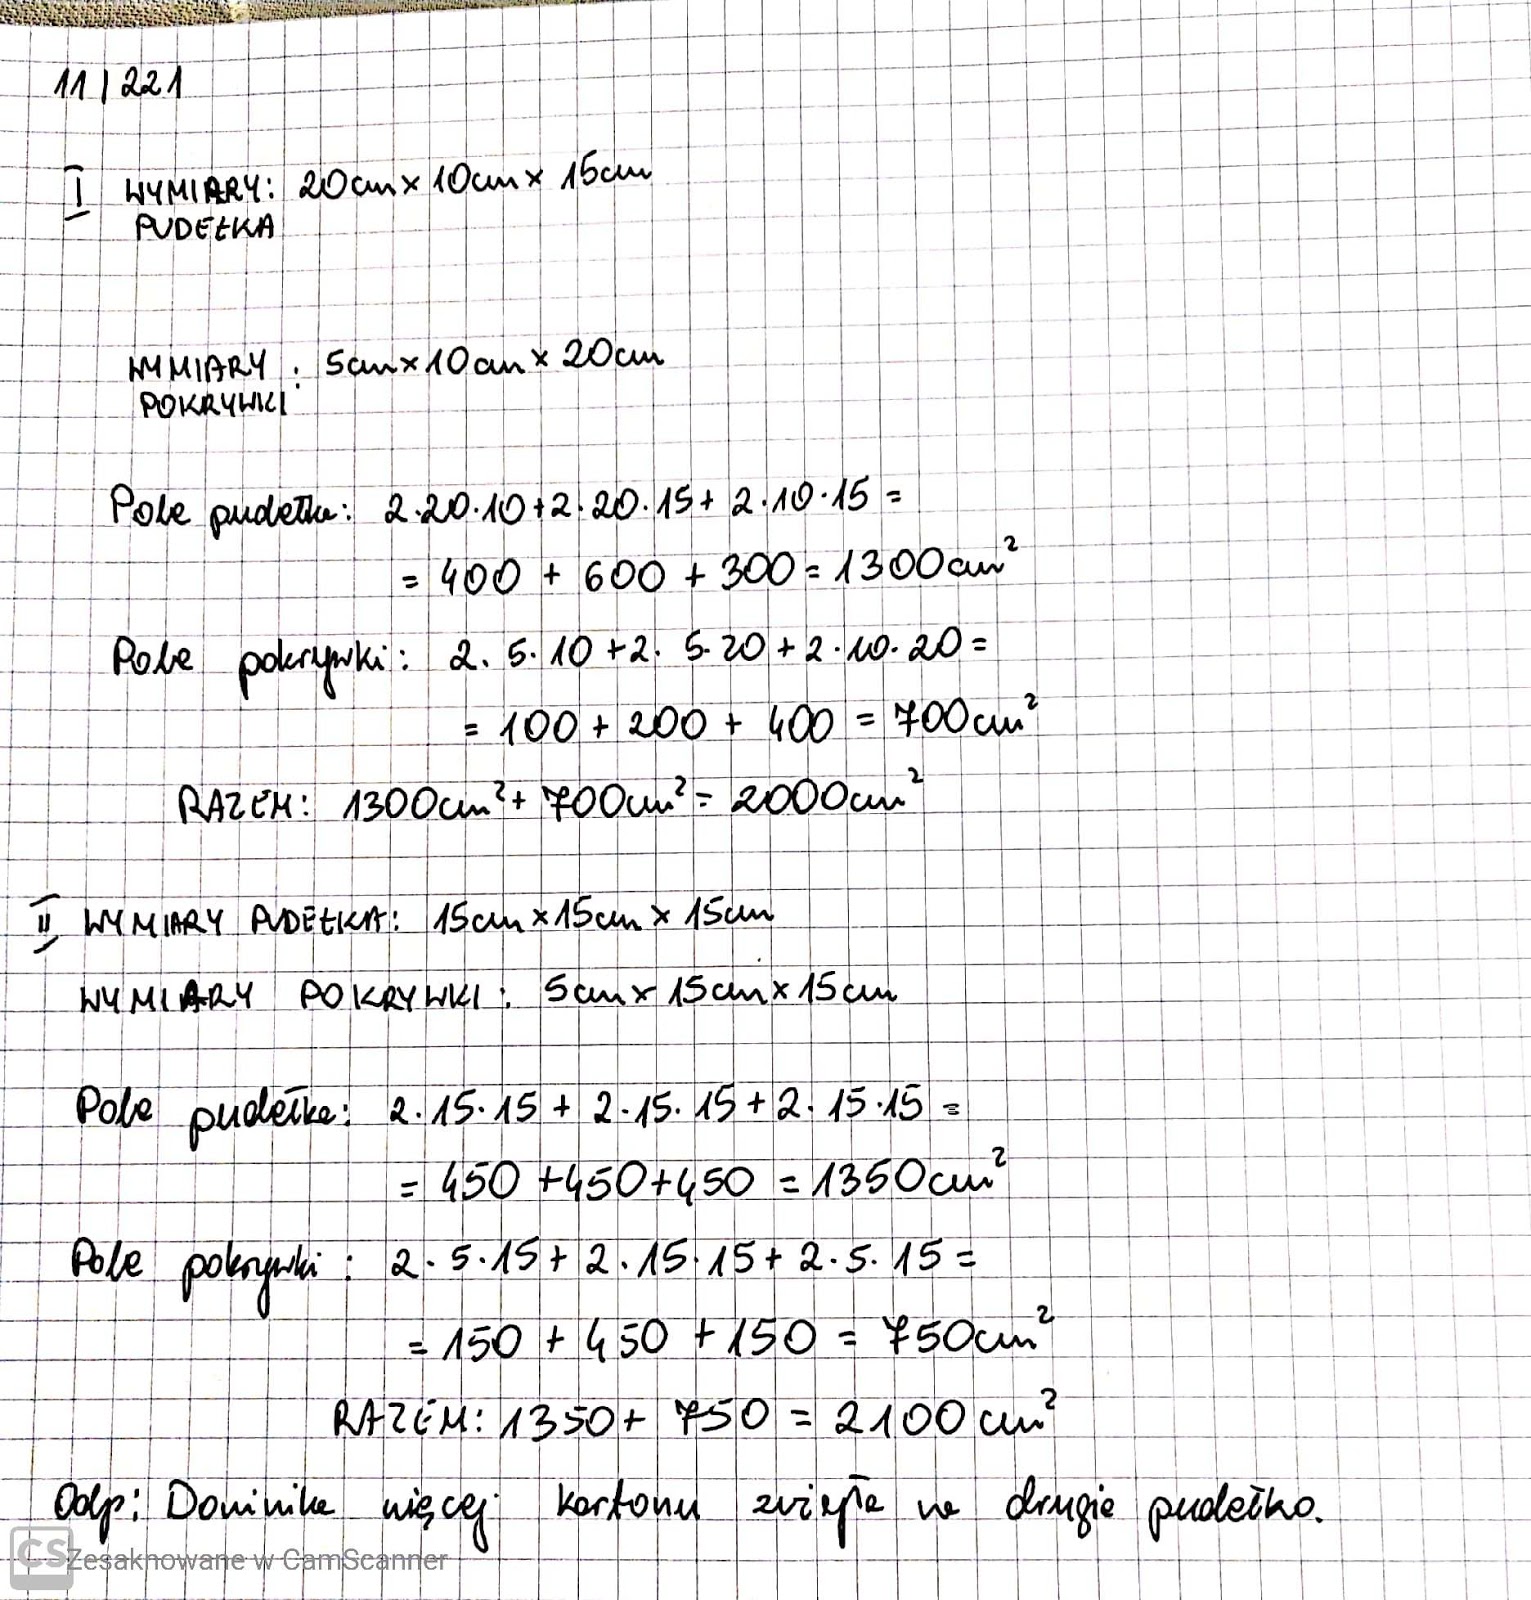 11/221
I WYMIARY: 20cm x 10cm x 15cm
PUDEŁKA
WYMIARY : 5cm x 10cm x 20cm
POKRYWKI
Pole pudełka: 2·20·10+2·20·15+ 2·10·15 =
= 400 + 600 + 300 = 1300cm²
Pole pokrywki: 2·5·10+2·5·20+2·10·20=
= 100 + 200 + 400 = 700cm²
RAZEM: 1300cm²+ 700cm²= 2000cm²
II WYMIARY PUDEŁKA: 15cm x 15cm x 15cm
WYMIARY POKRYWKI: 5cm x 15cm x 15cm
Pole pudełka: 2·15·15 + 2·15·15+2·15·15 =
= 450 +450+450 = 1350cm²
Pole pokrywki: 2·5·15+ 2·15·15+ 2·5·15=
= 150 + 450 + 150 = 750cm²
RAZEM: 1350+ 750 = 2100cm²
Odp: Dominika więcej kartonu zużyła na drugie pudełko.
CS Zesaknowane w CamScanner